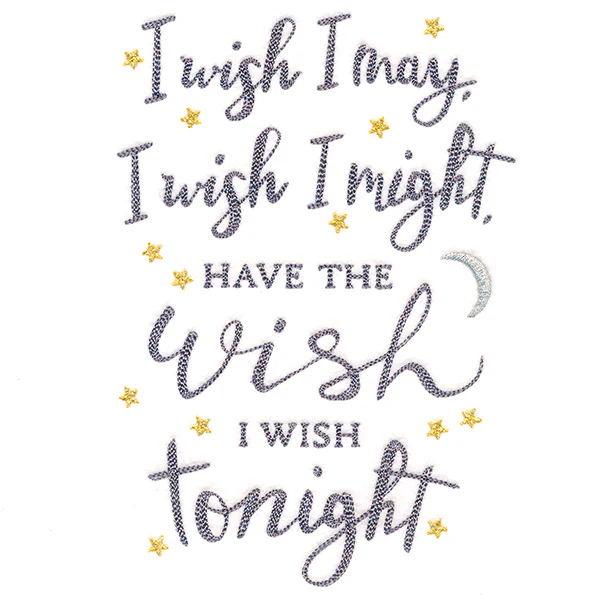 I wish I may,
I wish I might,
HAVE THE
wish
I WISH
tonight